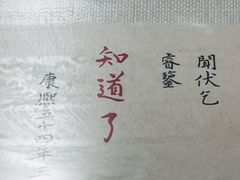 聞伏乞
睿鑒
知道了
康熙五十四年三